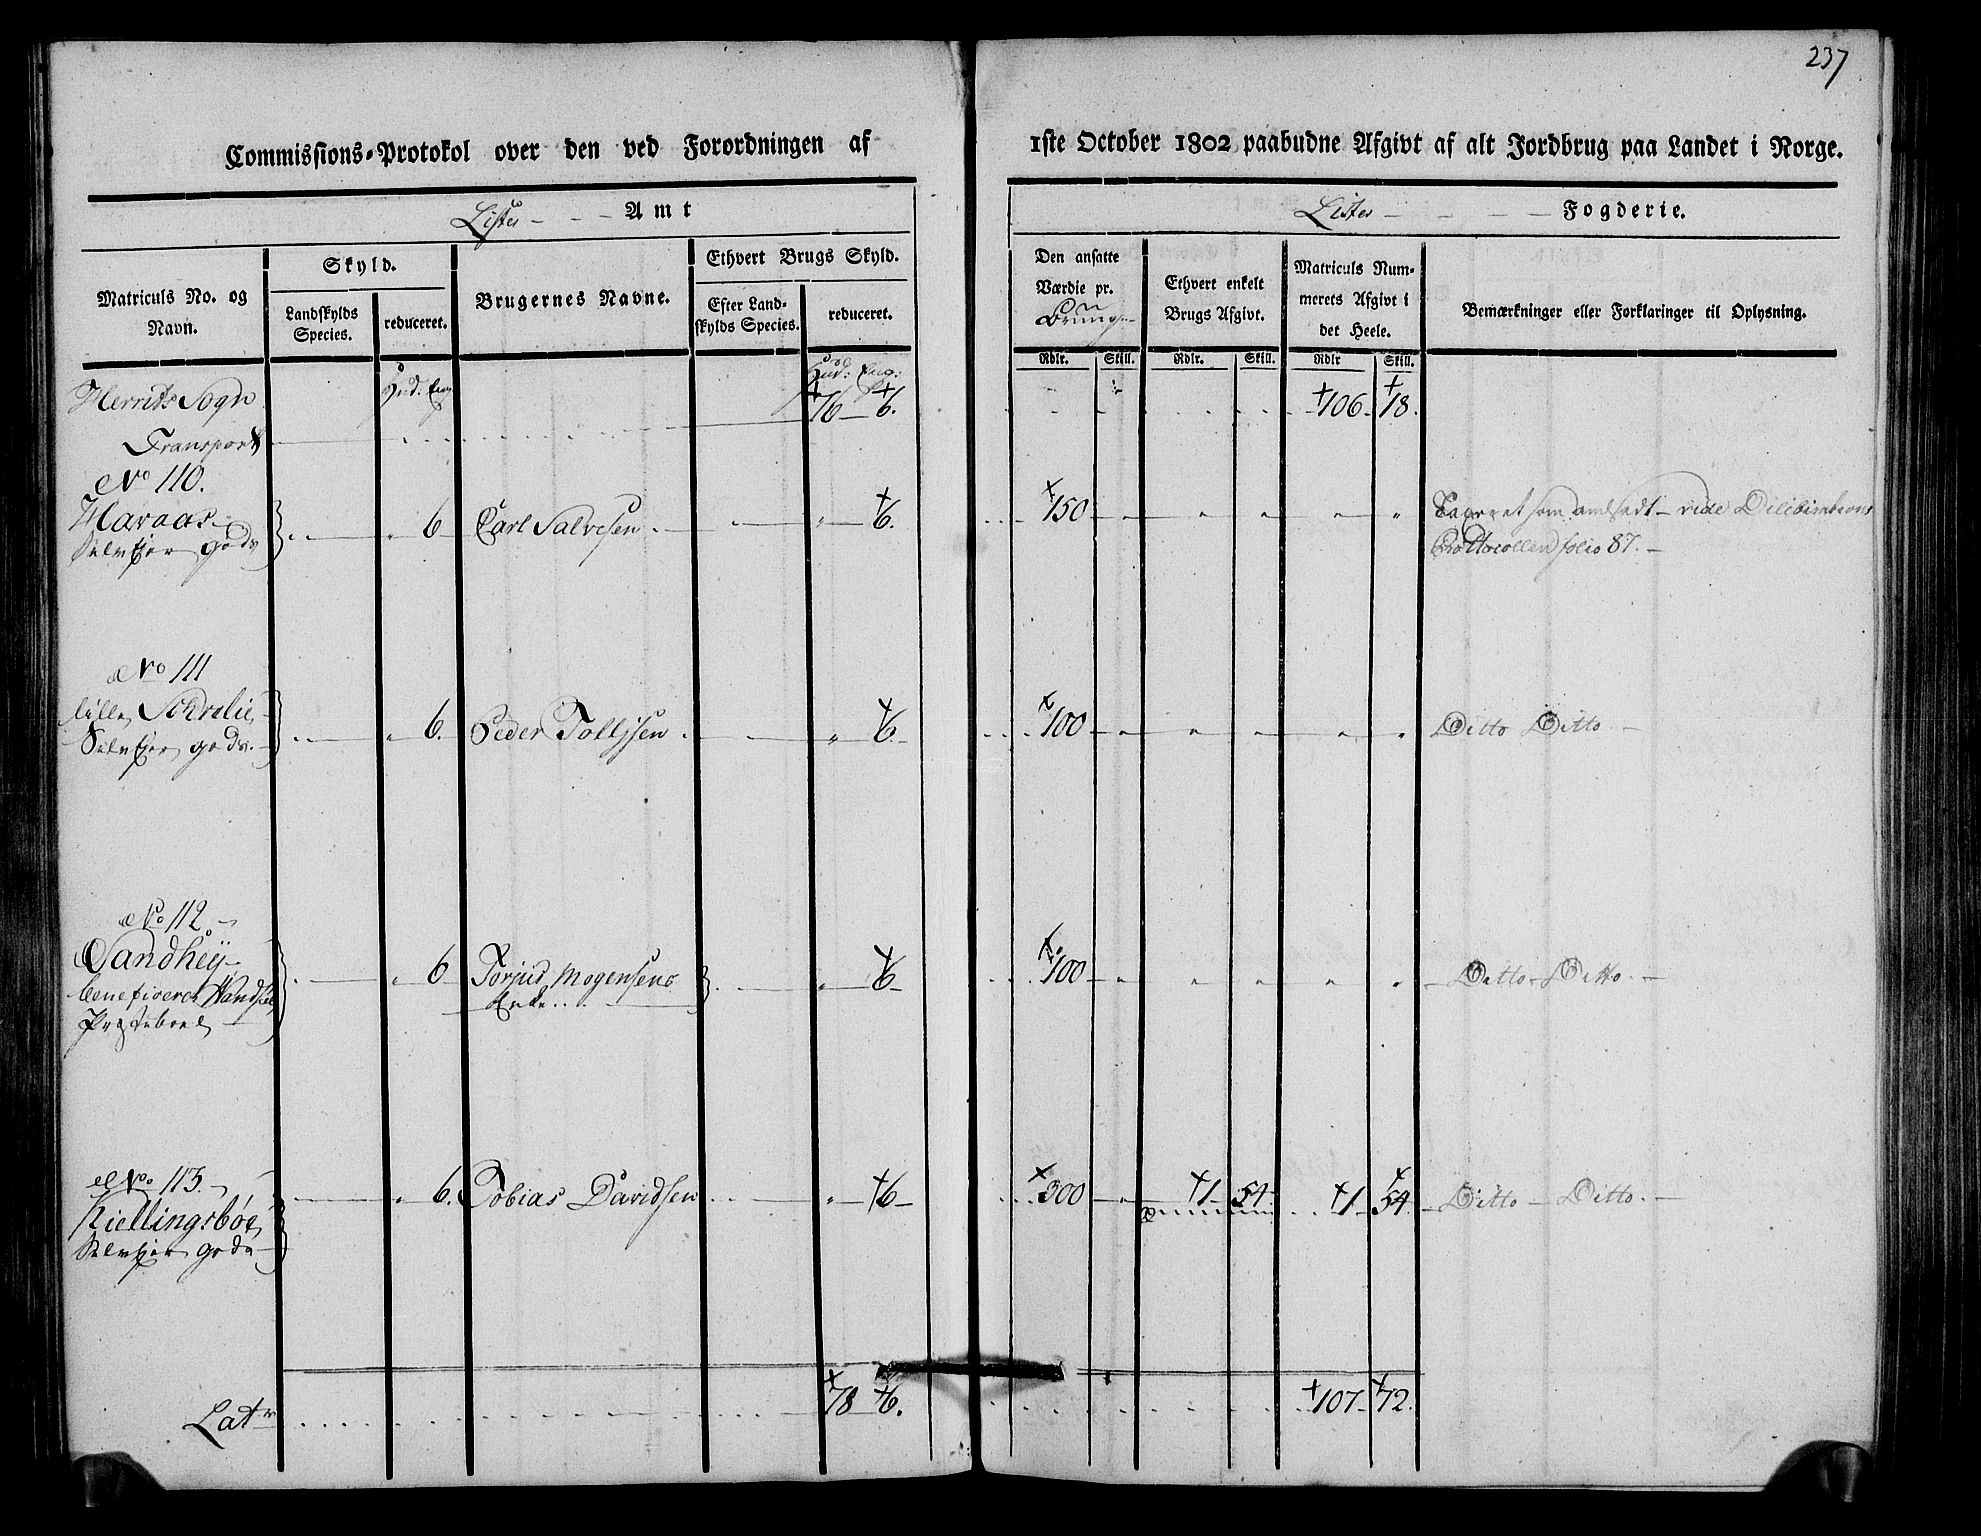 237
Commissions-Protokol over den ved Forordningen af 1ste October 1802 paabudne Afgivt af alt Jordbrug paa Landet i Norge.
Lister - - - Amt
Lister - - - - Fogderie.
Matriculs No. og Navn.
Skyld.
Landskylds Species.
reduceret.
Brugernes Navne.
Ethvert Brugs Skyld.
Efter Landskylds Species.
reduceret.
Den ansatte Værdie pr.
Ethvert enkelt Brugs Afgivt.
Matriculs Nummerets Afgivt i det Heele.
Bemærkninger eller Forklaringer til Oplysning.
Rdlr. Skill. Rdlr. Skill. Rdlr Skill.
Hud: Eng
Hud: Eng:
Herrids Sogn
Transport 76 - 6. 106 - 18.
No 110.
Havaas
Selveier gods 6 Carl Salvesen 6. 150 Taxeret som anført - vide
Protocollen folio 87. -
No 111
lille
Selveier gods. 6. Peder Tollisen 6. 100 Ditto Ditto -
No 112. -
Sandhey
beneficeret 6 Torjus Mogensens 6 100 Ditto - Ditto. -
Præstebord Enke
No 113. -
Kiellingsbøe 6. Tobias Davidsen 6 300 1 54 1 54. Ditto - Ditto. -
Selveier gods
Latr 78 - 6. 107 - 72.